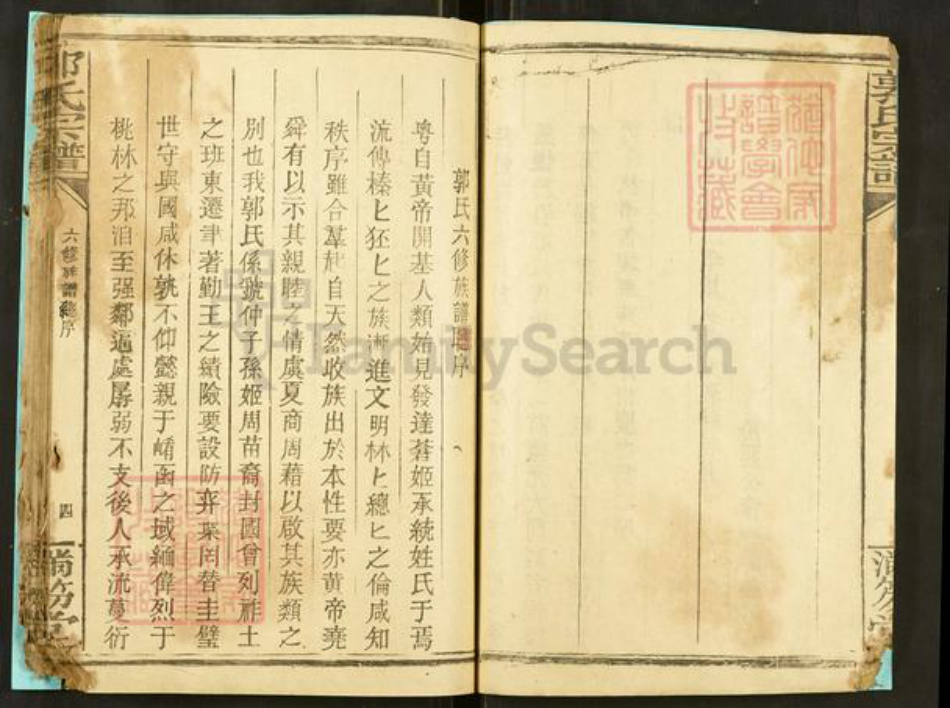 郭氏宗譜
郭氏六修族譜總序
粤自黃帝開基人類始見發達蒼姬承統姓氏于焉
流傳榛匕狉匕之族漸進文明林匕總匕之倫咸知
秩序雖合羣起自天然收族出於本性要亦黃帝堯
舜有以示其親睦之情虞夏商周藉以啟其族類之
別也我郭氏係虢仲子孫姬周苗裔封國會列胙土
之班東遷聿著勤王之績險要設防弈葉罔替圭璧
世守與國咸休孰不仰懿親于崤函之域緬偉烈于
桃林之邦洎至强鄰逼處孱弱不支後人承流蔓衍
郭氏宗譜
六修族譜總序
四
FamilySearch